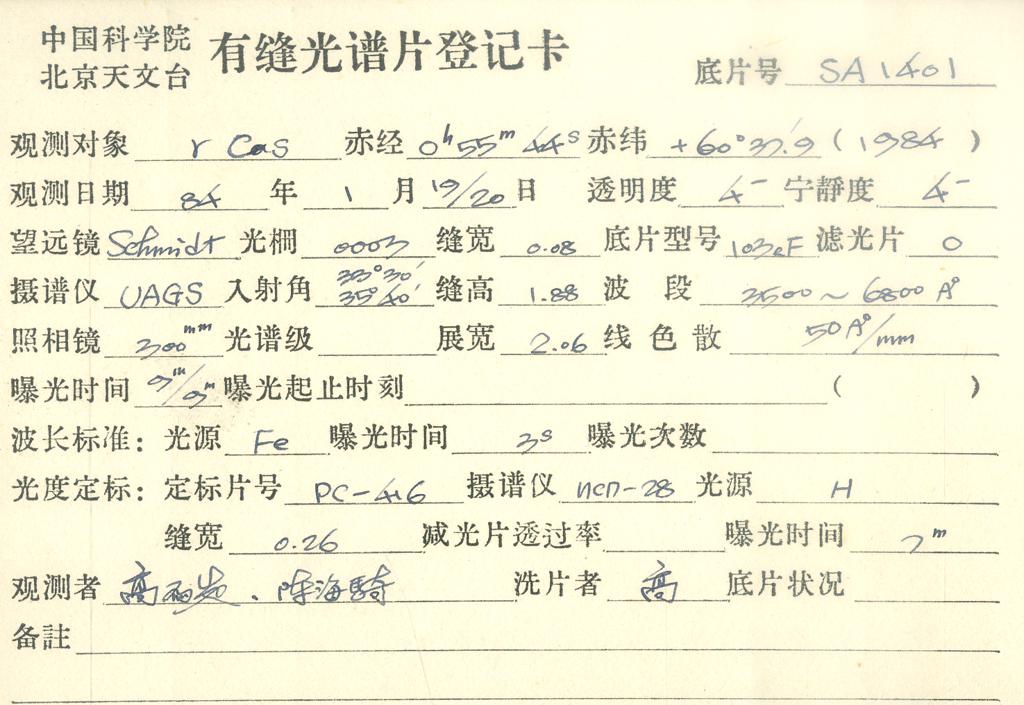 中国科学院
北京天文台
有缝光谱片登记卡
底片号 SA1401
观测对象 γ Cas 赤经 0ʰ55ᵐ44ˢ 赤纬 +60°37.′9 (1984)
观测日期 84 年 1 月 19/20 日 透明度 4⁻ 宁静度 4⁻
望远镜 Schmidt 光棡 0003 缝宽 0.08 底片型号 103aF 滤光片 0
摄谱仪 UAGS 入射角 33°30′ 35°40′ 缝高 1.88 波段 3500~6800 A°
照相镜 300ᵐᵐ 光谱级 展宽 2.06 线色散 50A°/mm
曝光时间 9ᵐ/9ᵐ 曝光起止时刻 ( )
波长标准: 光源 Fe 曝光时间 3ˢ 曝光次数
光度定标: 定标片号 PC-416 摄谱仪 ИСП-28 光源 H
缝宽 0.26 减光片透过率 曝光时间 7ᵐ
观测者 高 . 陈海骑 洗片者 高 底片状况
备註